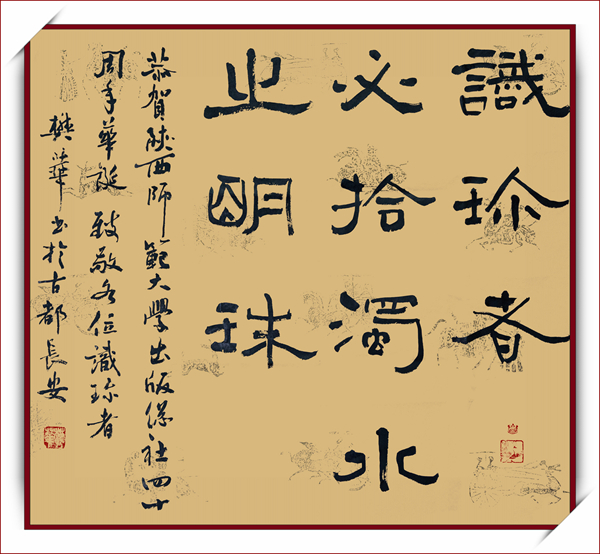 識珎者
必拾濁水
之朙珠
恭賀陝西師範大學出版總社四十
周年華誕致敬各位識珎者
樊華書於古都長安